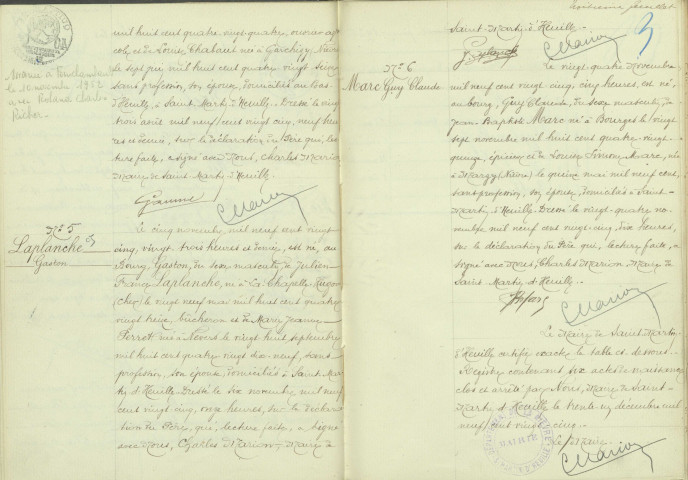 Mariée à
le 10 novembre 1952
avec Roland Charles
mil huit cent quatre vingt quatre,
et de Louise Chabaut née à Garchizy, Nièvre
le sept juin mil huit cent quatre vingt
sans profession, son épouse, domiciliés au Bas
d'Heuilly, à Saint-Martin d'Heuille. Dressé le vingt
trois août mil neuf cent vingt cinq, neuf heu
res et demie, sur la déclaration du Père qui, lec
ture faite, a signé avec Nous, Charles Marion
Maire de Saint-Martin d'Heuille.
CMarion
N° 5
Laplanche
Gaston
Le cinq novembre, mil neuf cent vingt
cinq, vingt trois heures et demie, est né, au
Bourg, Gaston, du sexe masculin, de Julien
François Laplanche, né à La Chapelle-Hugon
(Cher) le vingt neuf mai mil huit cent quatre
vingt treize, bûcheron et de Marie Jeanne
Perrot, née à Nevers le vingt huit septembre
mil huit cent quatre vingt dix-neuf, sans
profession, son épouse, domiciliés à Saint-Mar
tin d'Heuille. Dressé le six novembre mil neuf
cent vingt cinq, onze heures, sur la déclara
tion du Père, qui, lecture faite, a signé
avec Nous, Charles Marion, Maire de
Saint-Martin d'Heuille.
CMarion
3
N° 6
Marc Guy Claude
Le vingt quatre novembre
mil neuf cent vingt cinq, cinq heures, est né,
au bourg, Guy Claude, du sexe masculin, de
Jean-Baptiste Marc né à Bourges le vingt
sept novembre mil huit cent quatre-vingt-
quinze, épicier et de Louise
née
à Marzy (Nièvre) le quinze mai mil neuf cent,
sans profession, son épouse, domiciliés à Saint-
Martin d'Heuille. Dressé le vingt-quatre no-
vembre mil neuf cent vingt cinq, dix heures,
sur la déclaration du Père qui, lecture faite, a
signé avec Nous, Charles Marion, Maire de
Saint-Martin d'Heuille.
CMarion
Le Maire de Saint-Martin
d'Heuille certifie exacte la table ci-dessous.
Registre contenant six actes de naissance,
clos et arrêté par Nous, Maire de Saint-
Martin d'Heuille le trente un décembre mil
neuf cent vingt cinq.
Le Maire
CMarion